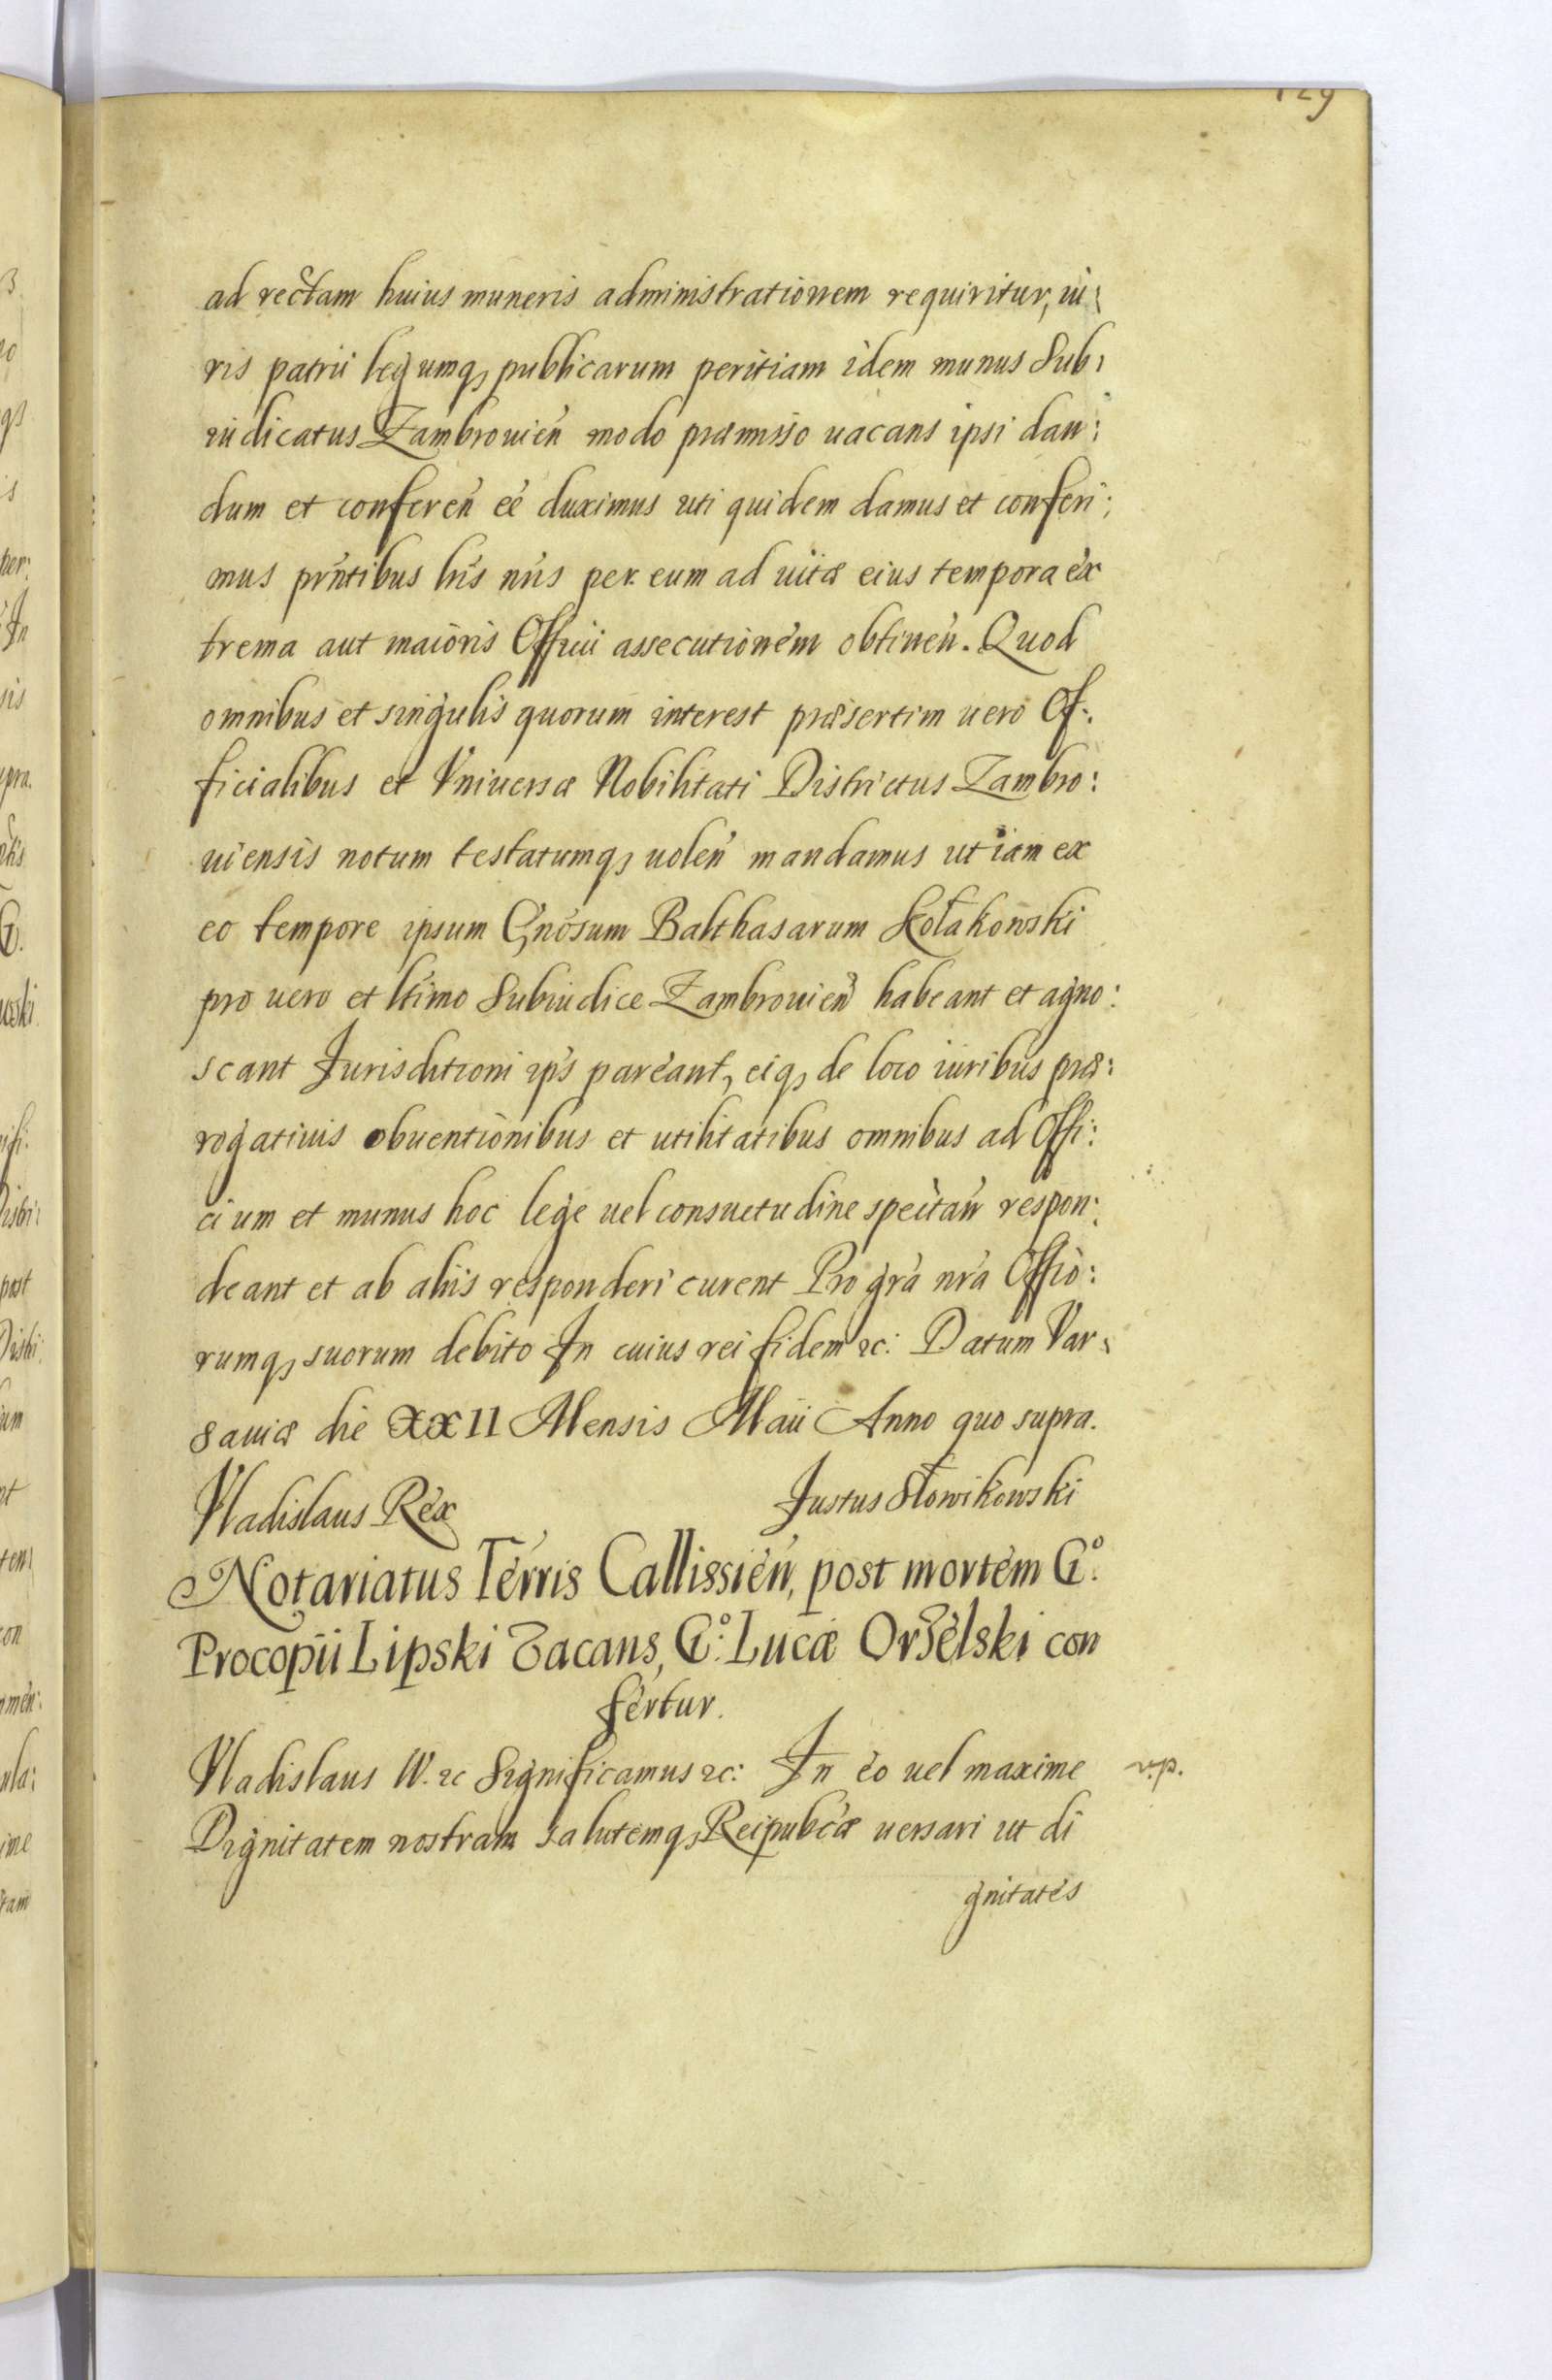 129
ad rectam huius muneris administrationem requiritur, iu:
ris patrii legumq; publicarum peritiam idem munus Sub:
iudicatus Zambrouien̄ modo præmisso uacans ipsi dan:
dum et conferen̄ eē duximus uti quidem damus et conferi:
mus pn̄tibus hīs nr̄is per eum ad uitæ eius tempora ex
trema aut maioris Officii assecutionem obtinen̄. Quod
omnibus et singulis quorum interest præsertim uero Of:
ficialibus et Vniuersæ Nobilitati Districtus Zambro:
uiensis notum testatumq; uolen̄ mandamus ut iam ex
eo tempore ipsum Gn̄osum Balthasarum Kołakowski
pro uero et lt̄imo Subiudice Zambrouien̄ habeant et agno:
scant Jurisditioni ip̄s pareant, eiq; de loco iuribus præ:
rogatiuis obuentionibus et utilitatibus omnibus ad Offi:
cium et munus hoc lege uel consuetudine spectan̄ respon:
deant et ab aliis responderi curent Pro gr̄a nr̄a Offio:
rumq; suorum debito In cuius rei fidem &c: Datum Var:
sauiæ die XXII Mensis Maii Anno quo supra.
Vladislaus Rex Justus Słowikowski
Notariatus Terris Callissien̄, post mortem G.º
Procopii Lipski Vacans, G.º Lucæ Orzelski con
fertur.
Vladislaus IV. &c Significamus &c: In eo uel maxime v.p.
Dignitatem nostram salutemq; Reipubc̄æ uersari ut di
gnitates